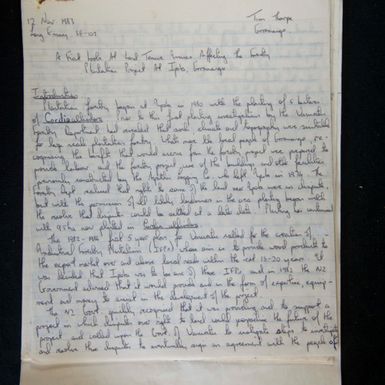 17 Nov 1983
Tim Thorpe
Erromango
A First Look At Land Tenure Issues Affecting The Forestry
Plantation Project At Ipota, Erromango
Introduction
Plantation forestry began at Ipota in 1980 with the planting of 5 hectares
of Cordia alliodora. Prior to this first planting investigations by the Vanuatu
forestry department had revealed that soils, climate and topography were suitable
for large scale plantation forestry. What's more the local people of Erromango, re-
cognising the benefits that would accrue from the forestry project were prepared to
provide labour. And the forestry project use of the building and other facilities
previously constructed by the logging Co. who left Ipota in 1974. The
forestry dept realised that rights to some of the land near Ipota were in dispute,
but with the permission of all landowners in the area planting began with
the resolve that disputes would be settled at a later date. Planting has continued
with 95 ha now planted in Cordia alliodora.
The 1982-1986 first 5 year plan for Vanuatu called for the creation of
Industrial Forestry Plantations (IFPs) whose aim is to provide wood products to
the export market over and above local needs within the next 15-20 years. It
was decided that Ipota was to be one of these IFPs, and in 1982 the NZ
Government advised that it would provide aid in the form of expertise, equip-
ment and money to assist in the development of the project.
The NZ Govt quickly recognised that it was providing aid to support a
project in which disputes over rights to land could jeopardise the future of the
project and called upon the Govt of Vanuatu to instigate steps to investigate
and resolve these disputes to eventually sign an agreement with the people of